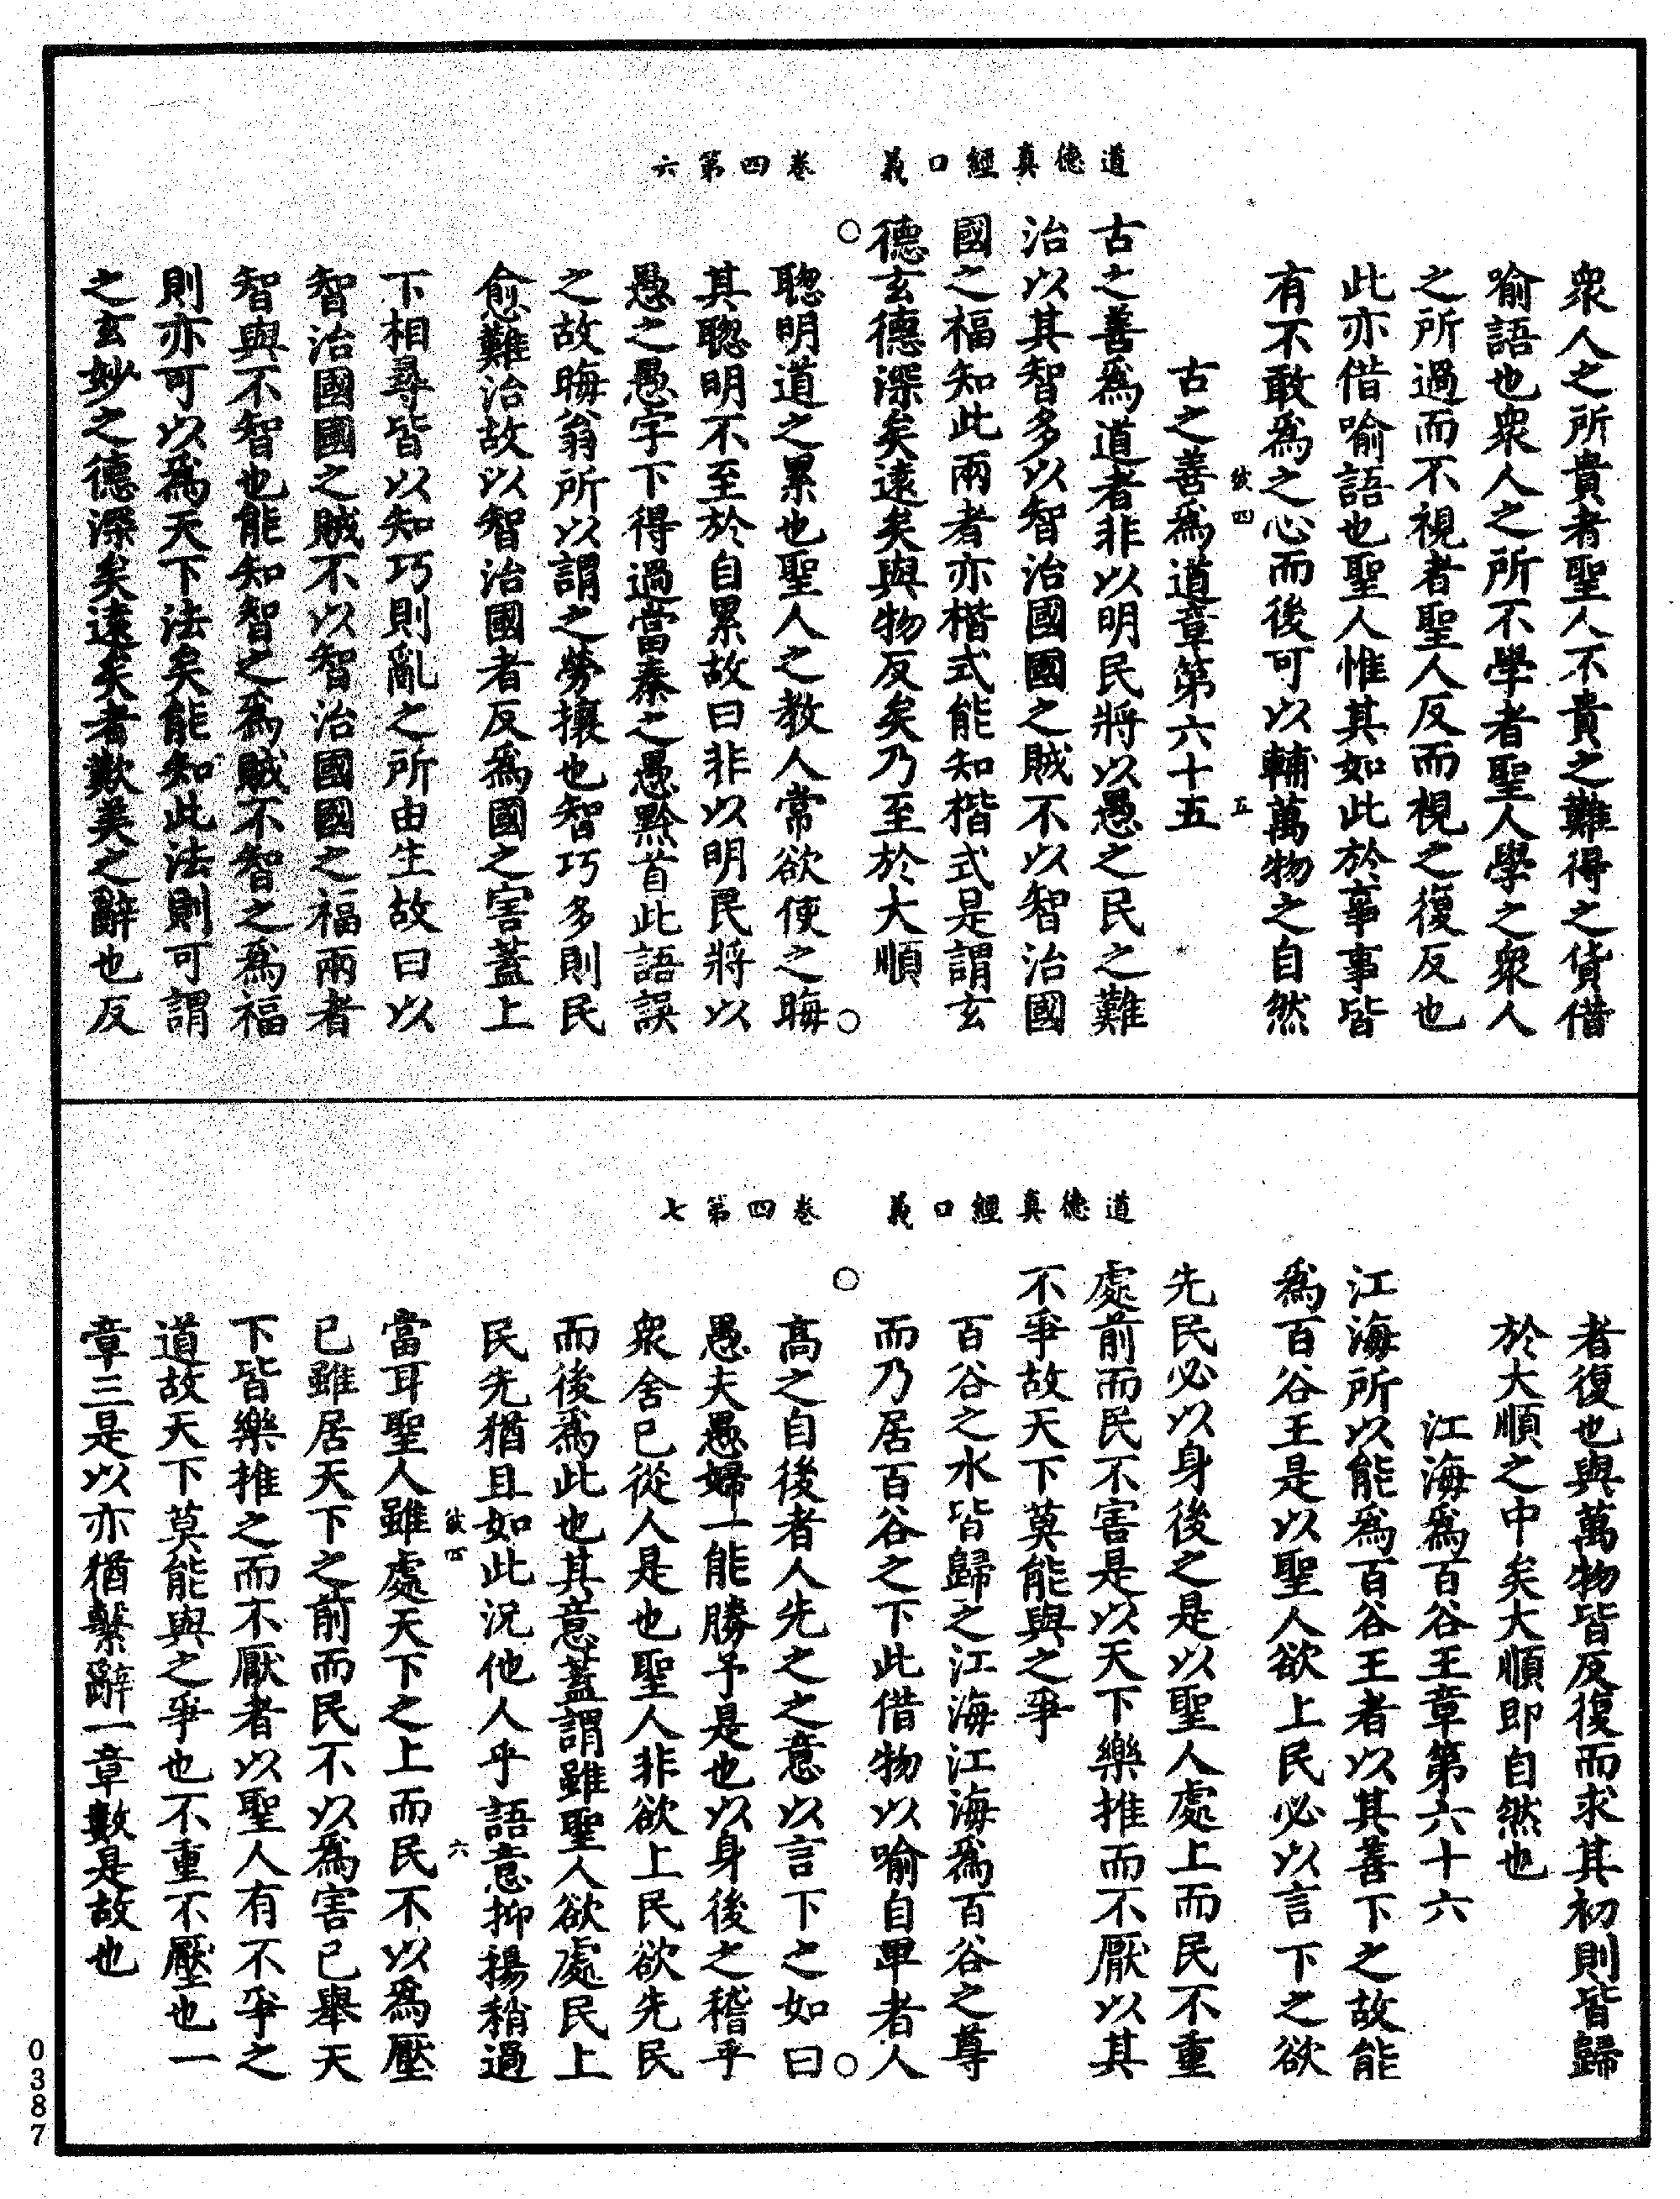 道德真經口義　卷四第六
衆人之所貴者聖人不貴之難得之貨借
喻語也衆人之所不學者聖人學之衆人
之所過而不視者聖人反而視之復反也
此亦借喻語也聖人惟其如此於事事皆
有不敢爲之心而後可以輔萬物之自然
四
五
古之善爲道章第六十五
古之善爲道者非以明民將以愚之民之難
治以其智多以智治國國之賊不以智治國
國之福知此兩者亦楷式能知楷式是謂玄
德玄德深矣遠矣與物反矣乃至於大順
聰明道之累也聖人之教人常欲使之晦
其聰明不至於自累故曰非以明民將以
愚之愚字下得過當秦之愚黔首此語誤
之故晦翁所以謂之勞攘也智巧多則民
愈難治故以智治國者反爲國之害蓋上
下相尋皆以知巧則亂之所由生故曰以
智治國國之賊不以智治國國之福兩者
智與不智也能知智之爲賊不智之爲福
則亦可以爲天下法矣能知此法則可謂
之玄妙之德深矣遠矣者歎美之辭也反
道德真經口義　卷四第七
者復也與萬物皆反復而求其初則皆歸
於大順之中矣大順即自然也
江海爲百谷王章第六十六
江海所以能爲百谷王者以其善下之故能
爲百谷王是以聖人欲上民必以言下之欲
先民必以身後之是以聖人處上而民不重
處前而民不害是以天下樂推而不厭以其
不爭故天下莫能與之爭
百谷之水皆歸之江海江海爲百谷之尊
而乃居百谷之下此借物以喻自卑者人
高之自後者人先之之意以言下之如曰
愚夫愚婦一能勝予是也以身後之稽乎
衆舍已從人是也聖人非欲上民欲先民
而後爲此也其意蓋謂雖聖人欲處民上
民先猶且如此況他人乎語意抑揚稍過
四
六
當耳聖人雖處天下之上而民不以爲壓
已雖居天下之前而民不以爲害已舉天
下皆樂推之而不厭者以聖人有不爭之
道故天下莫能與之爭也不重不壓也一
章三是以亦猶繫辭一章數是故也
0387